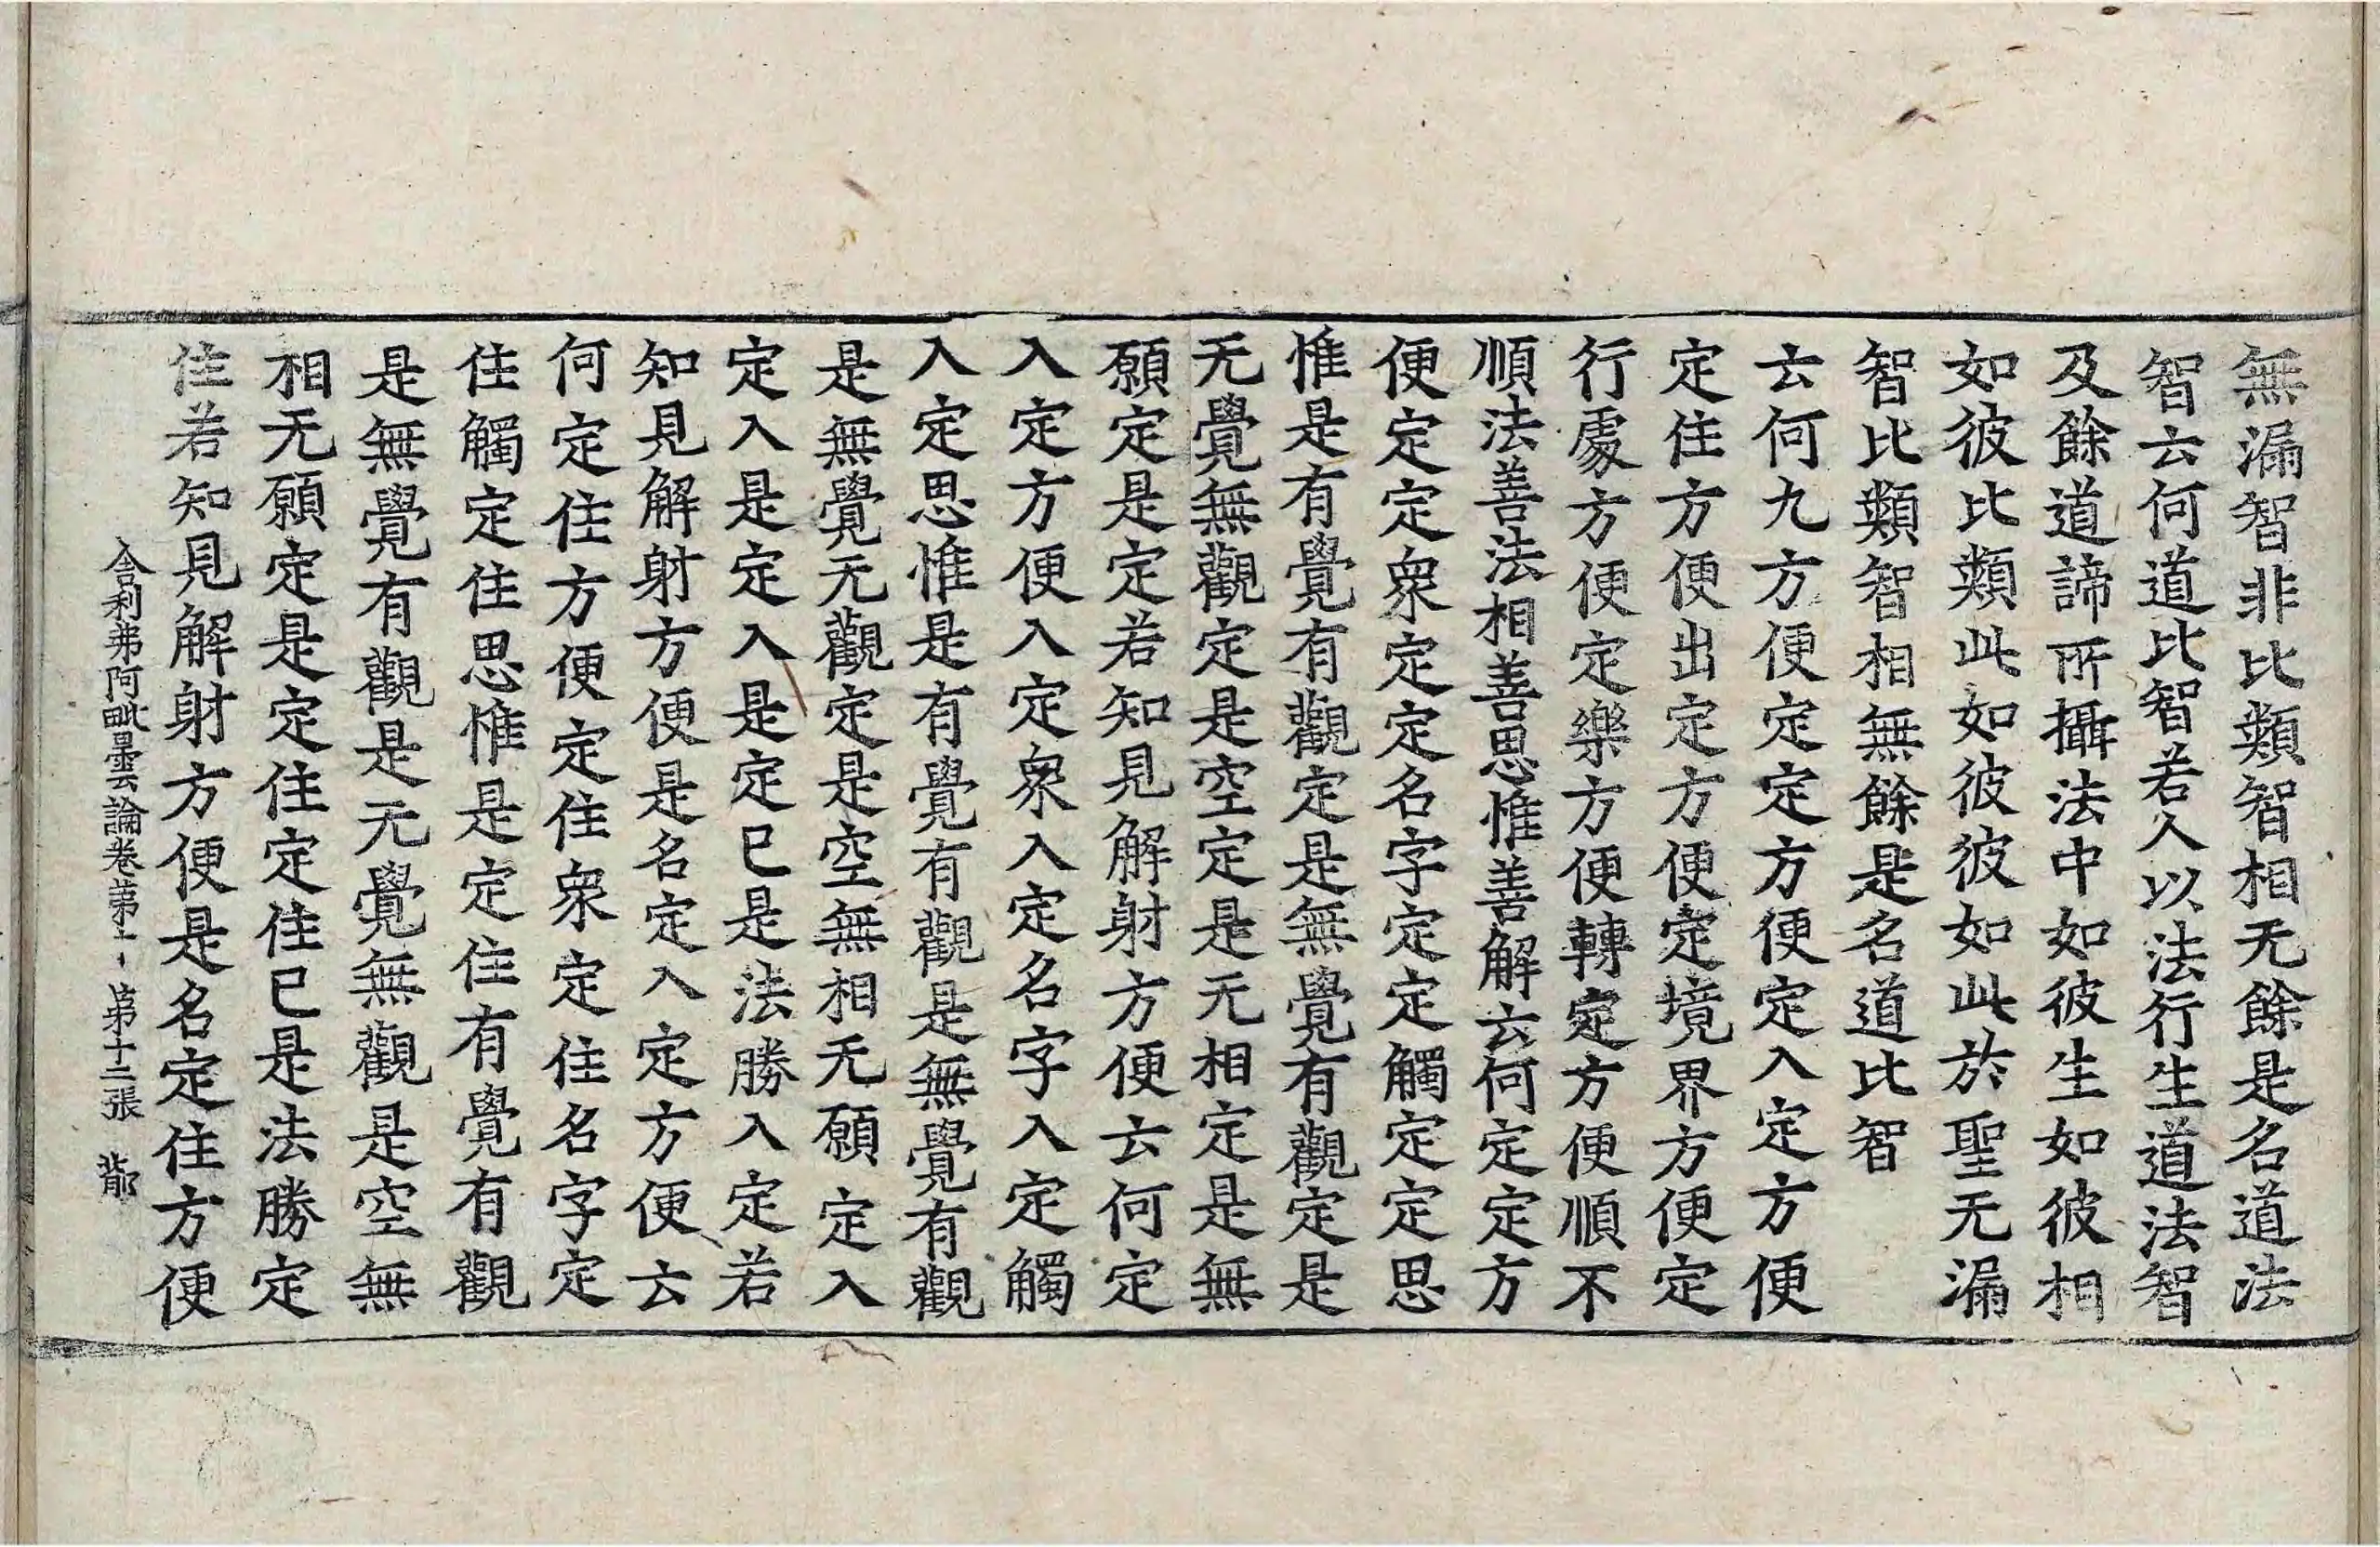 無漏智非比類智相无餘是名道法
智云何道比智若人以法行生道法智
及餘道諦所攝法中如彼生如彼相
如彼比類此如彼彼如此於聖无漏
智比類智相無餘是名道比智
云何九方便定定方便定入定方便
定住方便出定方便定境界方便定
行處方便定樂方便轉定方便順不
順法善法相善思惟善解云何定定方
便定定衆定定名字定定觸定定思
惟是有覺有觀定是無覺有觀定是
无覺無觀定是空定是无相定是無
願定是定若知見解射方便云何定
入定方便入定衆入定名字入定觸
入定思惟是有覺有觀是無覺有觀
是無覺无觀定是空無相无願定入
定入是定入是定已是法勝入定若
知見解射方便是名定入定方便云
何定住方便定住衆定住名字定
住觸定住思惟是定住有覺有觀
是無覺有觀是无覺無觀是空無
相无願定是定住定住已是法勝定
住若知見解射方便是名定住方便
舍利弗阿毗曇論卷第十 第十二張